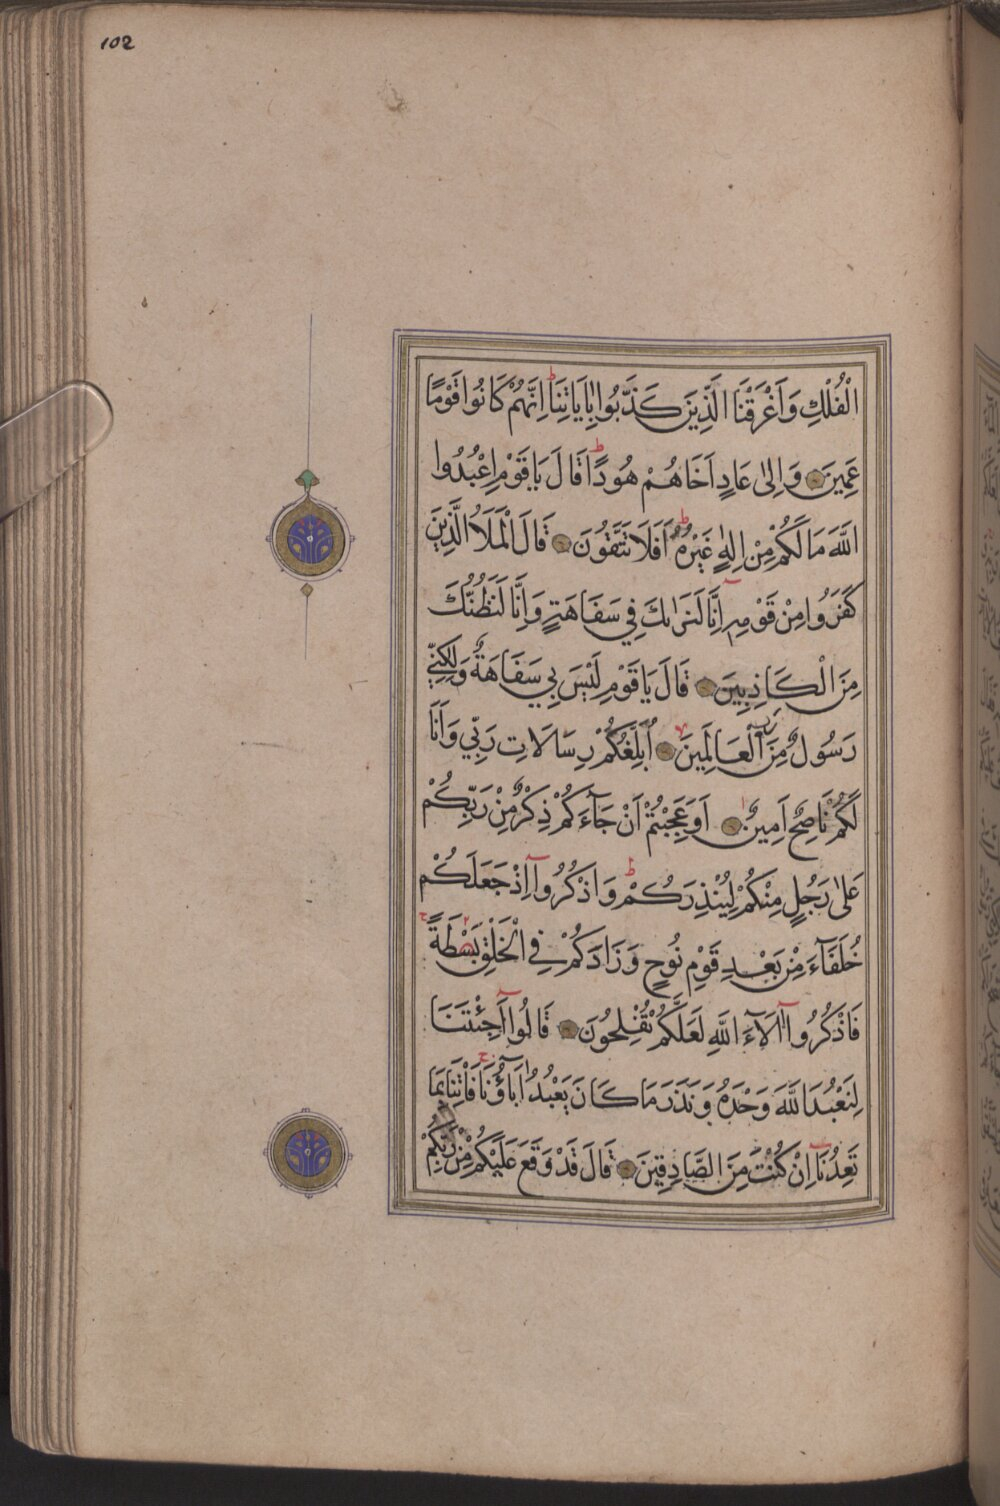 102
الْفُلْكِ وَاَغْرَقْنَا الَّذ۪ينَ كَذَّبُوا بِاٰيَاتِنَا ط اِنَّهُمْ كَانُوا قَوْمًا
عَم۪ينَ وَاِلٰى عَادٍ اَخَاهُمْ هُودًا ط قَالَ يَا قَوْمِ اعْبُدُوا
اللّٰهَ مَا لَكُمْ مِنْ اِلٰهٍ غَيْرُهُ ط اَفَلَا تَتَّقُونَ قَالَ الْمَلَاُ الَّذ۪ينَ
كَفَرُوا مِنْ قَوْمِه۪ٓ اِنَّا لَنَرٰيكَ ف۪ي سَفَاهَةٍ وَاِنَّا لَنَظُنُّكَ
مِنَ الْكَاذِب۪ينَ قَالَ يَا قَوْمِ لَيْسَ ب۪ي سَفَاهَةٌ وَلٰكِنّ۪ي
رَسُولٌ مِنْ رَبِّ الْعَالَم۪ينَ اُبَلِّغُكُمْ رِسَالَاتِ رَبّ۪ي وَاَنَا
لَكُمْ نَاصِحٌ اَم۪ينٌ اَوَعَجِبْتُمْ اَنْ جَٓاءَكُمْ ذِكْرٌ مِنْ رَبِّكُمْ
عَلٰى رَجُلٍ مِنْكُمْ لِيُنْذِرَكُمْ ط وَاذْكُرُٓوا اِذْ جَعَلَكُمْ
خُلَفَٓاءَ مِنْ بَعْدِ قَوْمِ نُوحٍ وَزَادَكُمْ فِي الْخَلْقِ بَسْطَةً ج
فَاذْكُرُٓوا اٰلَٓاءَ اللّٰهِ لَعَلَّكُمْ تُفْلِحُونَ قَالُٓوا اَجِئْتَنَا
لِنَعْبُدَ اللّٰهَ وَحْدَهُ وَنَذَرَ مَا كَانَ يَعْبُدُ اٰبَٓاؤُ۬نَا ج فَأْتِنَا بِمَا
تَعِدُنَٓا اِنْ كُنْتَ مِنَ الصَّادِق۪ينَ قَالَ قَدْ وَقَعَ عَلَيْكُمْ مِنْ رَبِّكُمْ